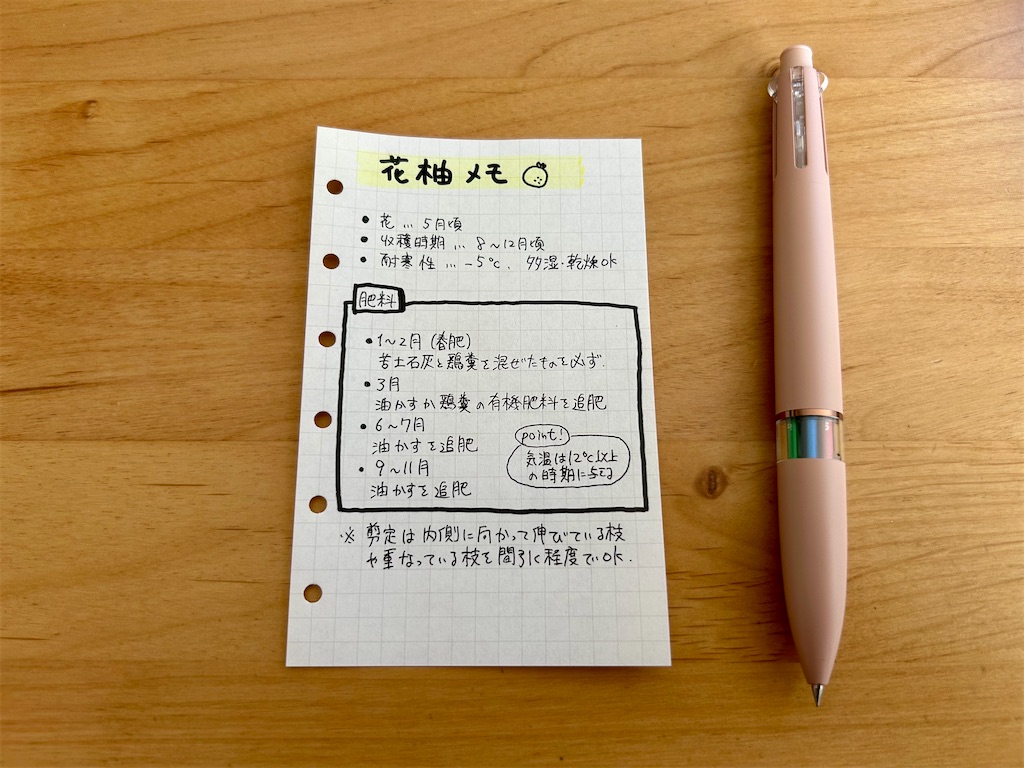 花柚メモ
• 花 … 5月頃
• 収穫時期 … 8〜12月頃
• 耐寒性 … -5℃、多湿・乾燥OK
肥料
• 1〜2月 (春肥)
苦土石灰と鶏糞を混ぜたものを必ず.
• 3月
油かすか鶏糞の有機肥料を追肥
• 6〜7月
油かすを追肥
• 9〜11月
油かすを追肥
point!
気温は12℃以上
の時期に与える
※ 剪定は内側に向かって伸びている枝
や重なっている枝を間引く程度でOK.